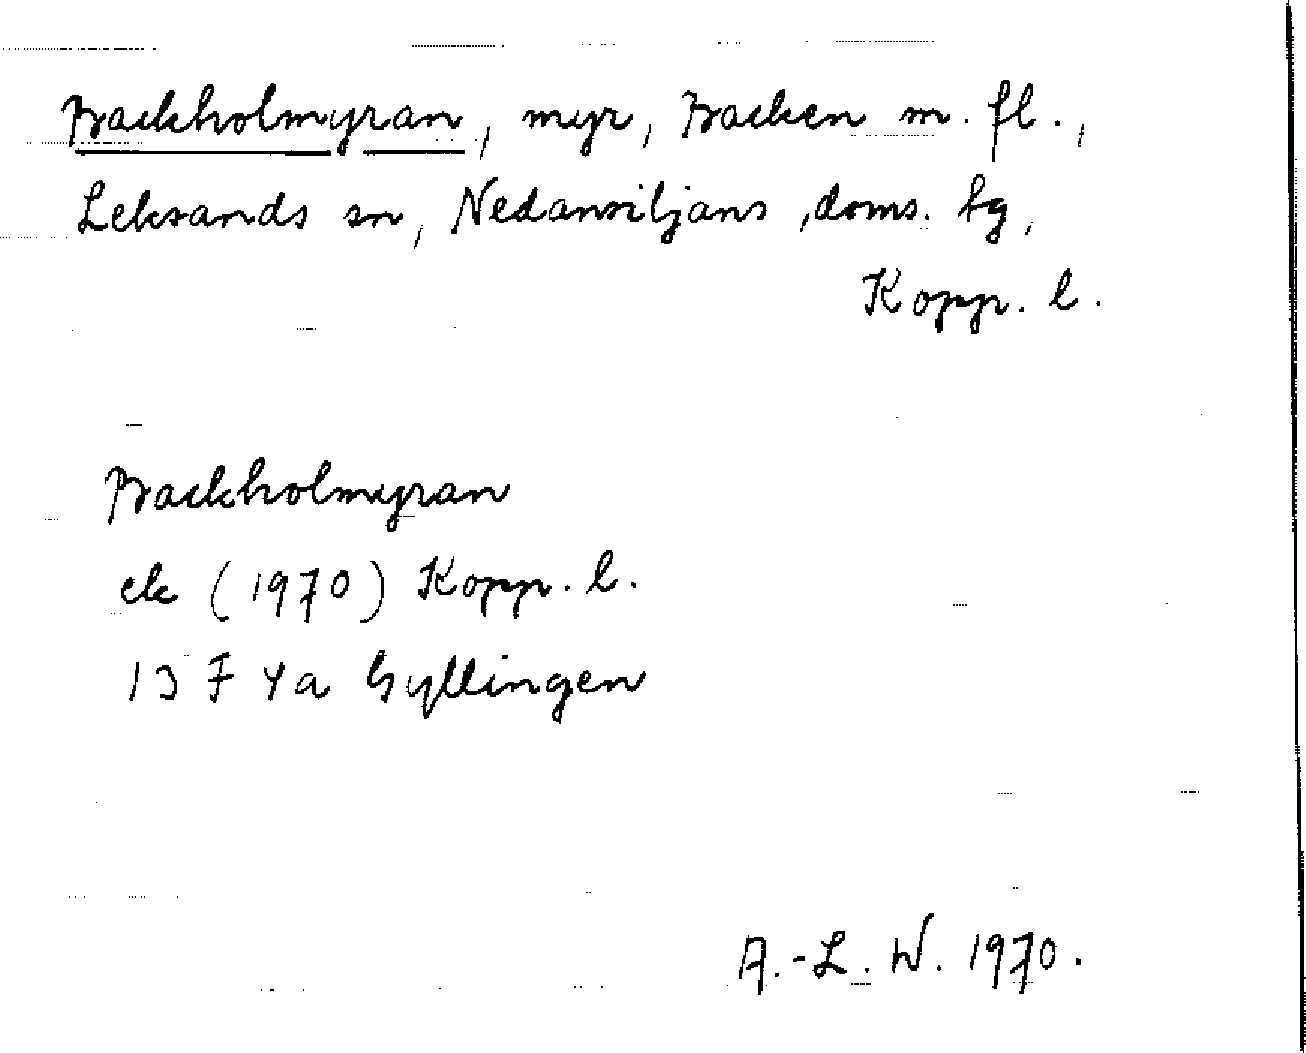 Backholmyran, myr, Backen m. fl.,
Leksands sn, Nedansiljans doms. fg,
Kopp. l.
Backholmyran
ek (1970) Kopp. l.
13 F 4a Gyllingen
A.-L. W. 1970.